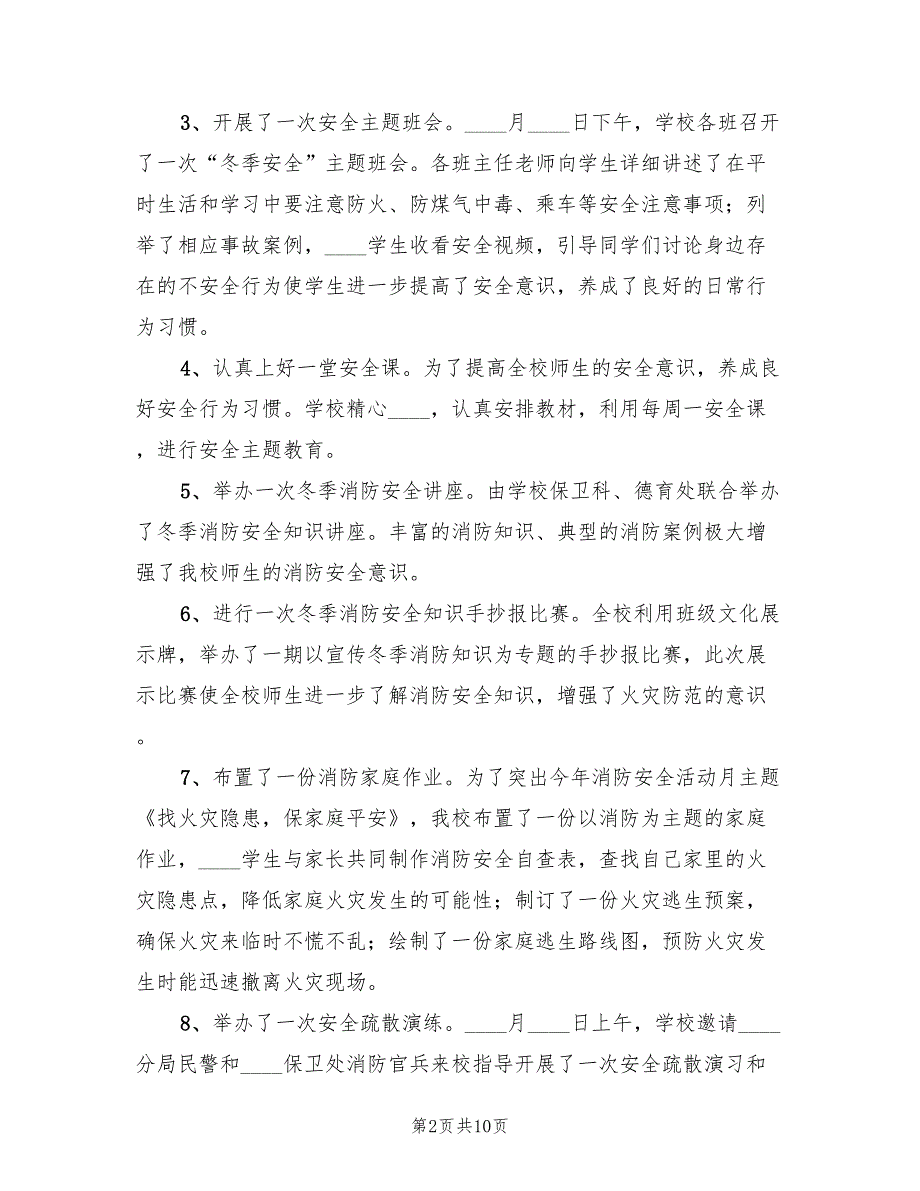 3、开展了一次安全主题班会。____月____日下午，学校各班召开
了一次“冬季安全”主题班会。各班主任老师向学生详细讲述了在平
时生活和学习中要注意防火、防煤气中毒、乘车等安全注意事项；列
举了相应事故案例，____学生收看安全视频，引导同学们讨论身边存
在的不安全行为使学生进一步提高了安全意识，养成了良好的日常行
为习惯。
4、认真上好一堂安全课。为了提高全校师生的安全意识，养成良
好安全行为习惯。学校精心____，认真安排教材，利用每周一安全课
，进行安全主题教育。
5、举办一次冬季消防安全讲座。由学校保卫科、德育处联合举办
了冬季消防安全知识讲座。丰富的消防知识、典型的消防案例极大增
强了我校师生的消防安全意识。
6、进行一次冬季消防安全知识手抄报比赛。全校利用班级文化展
示牌，举办了一期以宣传冬季消防知识为专题的手抄报比赛，此次展
示比赛使全校师生进一步了解消防安全知识，增强了火灾防范的意识
。
7、布置了一份消防家庭作业。为了突出今年消防安全活动月主题
《找火灾隐患，保家庭平安》，我校布置了一份以消防为主题的家庭
作业，____学生与家长共同制作消防安全自查表，查找自己家里的火
灾隐患点，降低家庭火灾发生的可能性；制订了一份火灾逃生预案，
确保火灾来临时不慌不乱；绘制了一份家庭逃生路线图，预防火灾发
生时能迅速撤离火灾现场。
8、举办了一次安全疏散演练。____月____日上午，学校邀请____
分局民警和____保卫处消防官兵来校指导开展了一次安全疏散演习和
第2页共10页